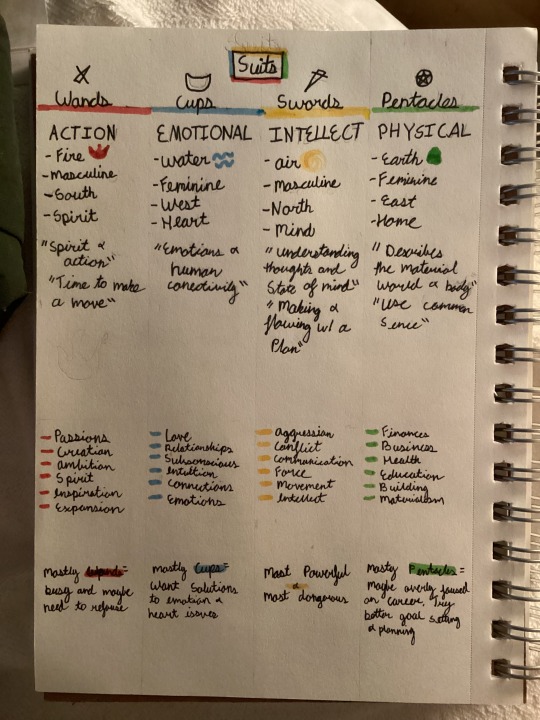 Suits
Wands
ACTION
- Fire
- Masculine
- South
- Spirit
"Spirit &
action"
"Time to make
a move"
Cups
EMOTIONAL
- Water
- Feminine
- West
- Heart
"Emotions &
human
conectivity"
Swords
INTELLECT
- air
- masculine
- North
- Mind
"understanding
thoughts and
State of mind"
"Making &
flowing w/ a
Plan"
Pentacles
PHYSICAL
- Earth
- Feminine
- East
- Home
"Describes
the material
world & body"
"use common
sence"
- Passions
- Creation
- ambition
- Spirit
- Inspiration
- Expansion
- Love
- Relationships
- Subconscious
- Intuition
- Connections
- Emotions
- Aggression
- Conflict
- Communication
- Force
- Movement
- Intellect
- Finances
- Business
- Health
- Education
- Building
- Materialism
mostly Wands =
busy and maybe
need to refouse
mostly Cups =
want Solutions
to emotion &
heart issues
Most Powerful
&
most dangerous
Mosty Pentacles =
maybe overly foused
on career. Try
better goal setting
& planning